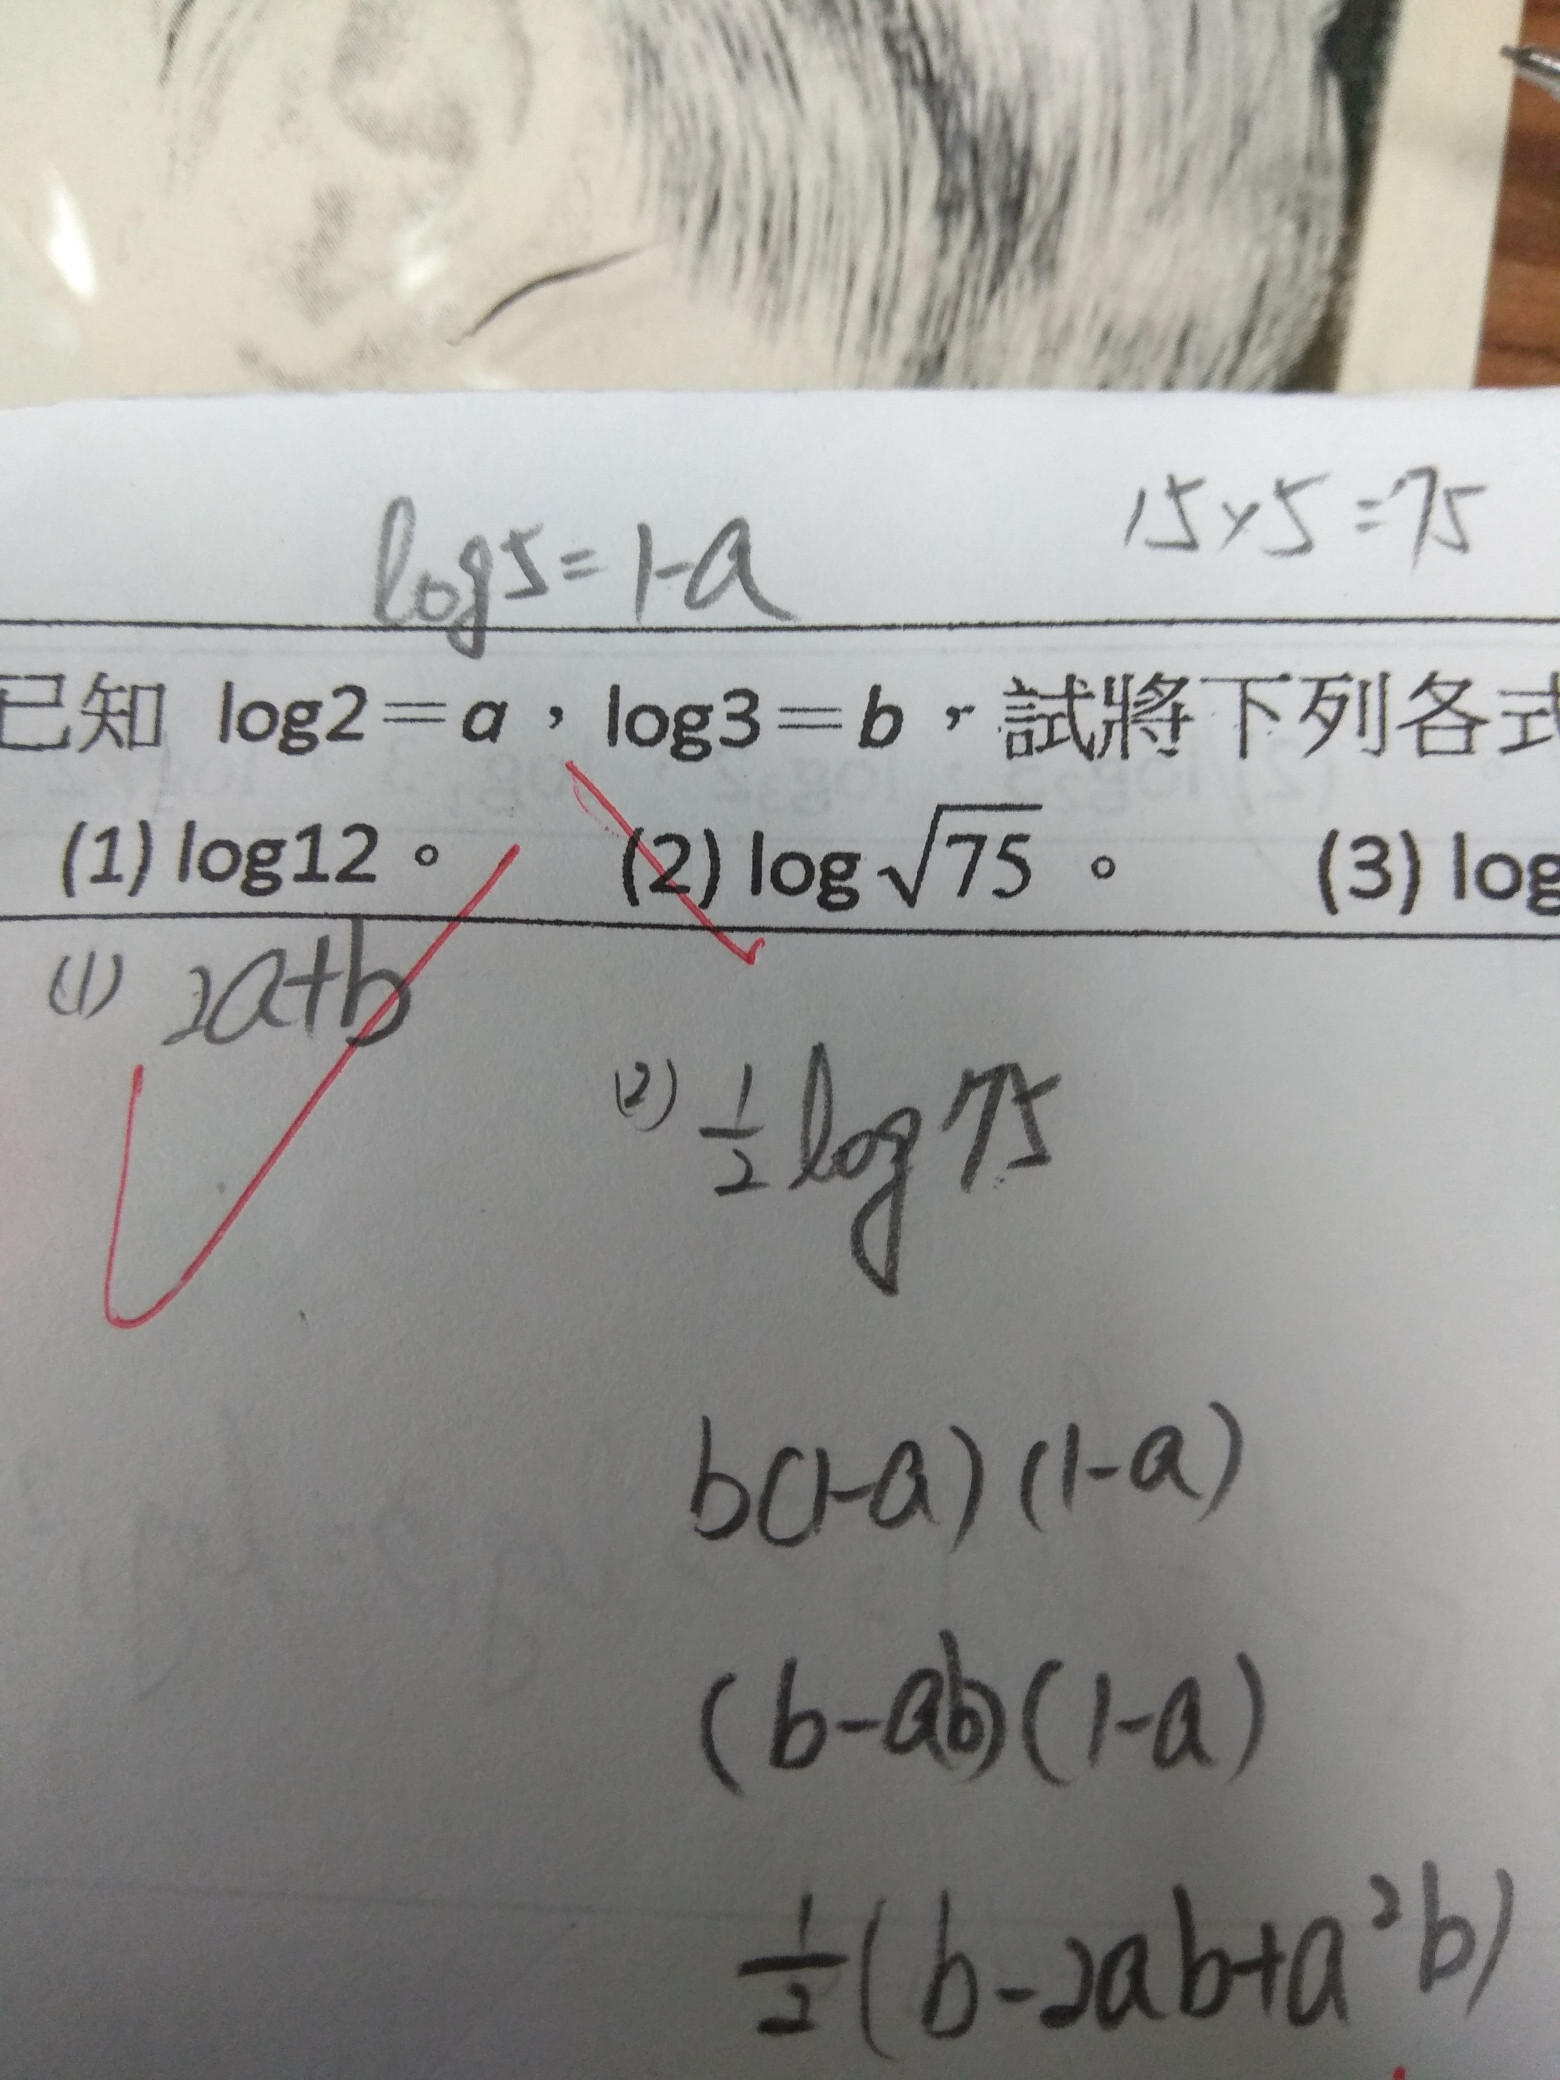 log5=1-a
15×5=75
已知 log2=a，log3=b，試將下列各式
(1) log12。 (2) log√75 。 (3) log
(1) 2a+b
(2) 1/2 log 75
b(1-a)(1-a)
(b-ab)(1-a)
1/2(b-2ab+a²b)